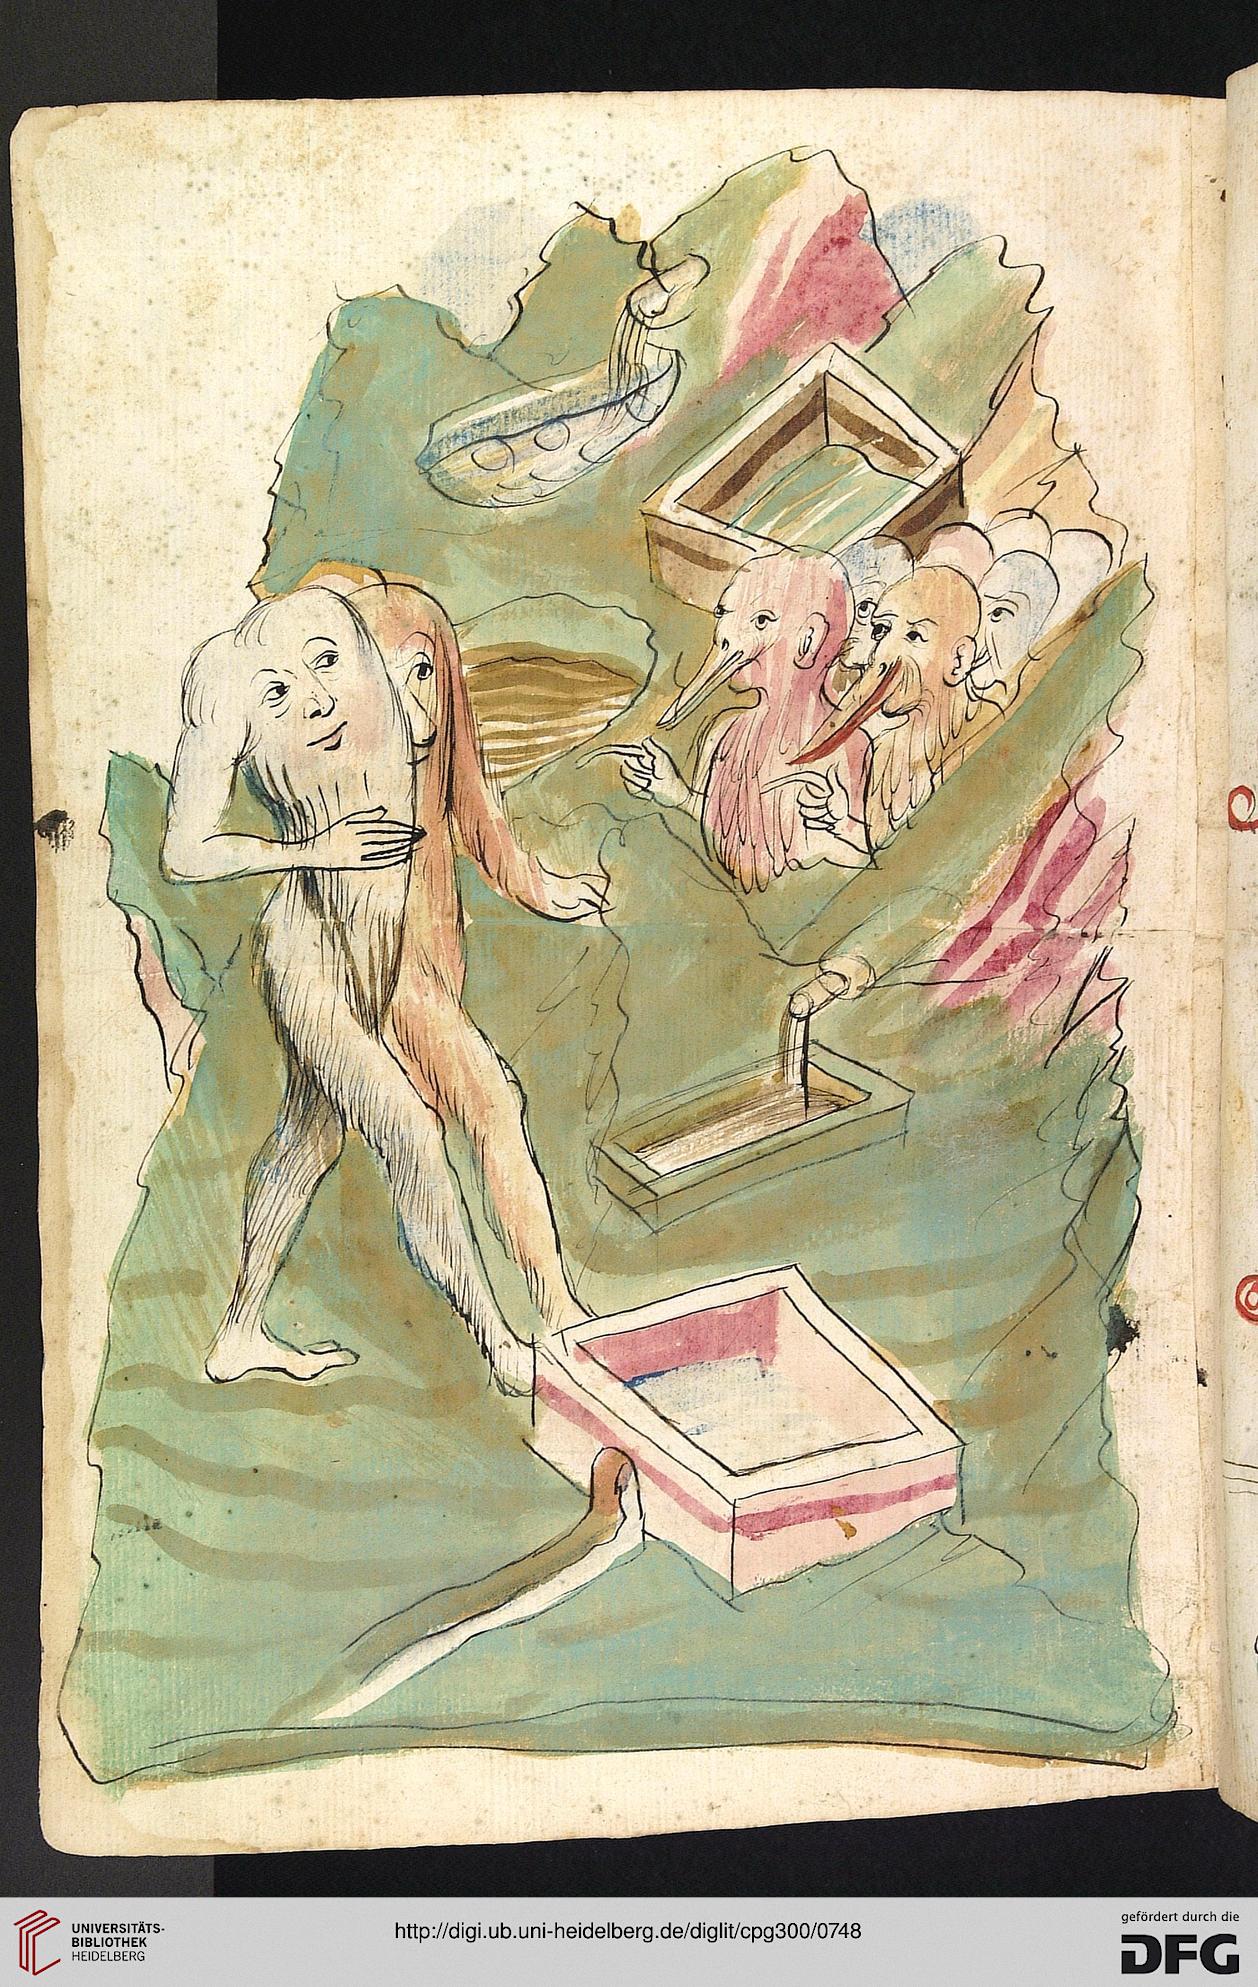 UNIVERSITÄTS-
BIBLIOTHEK
HEIDELBERG
http://digi.ub.uni-heidelberg.de/diglit/cpg300/0748
gefördert durch die
DFG